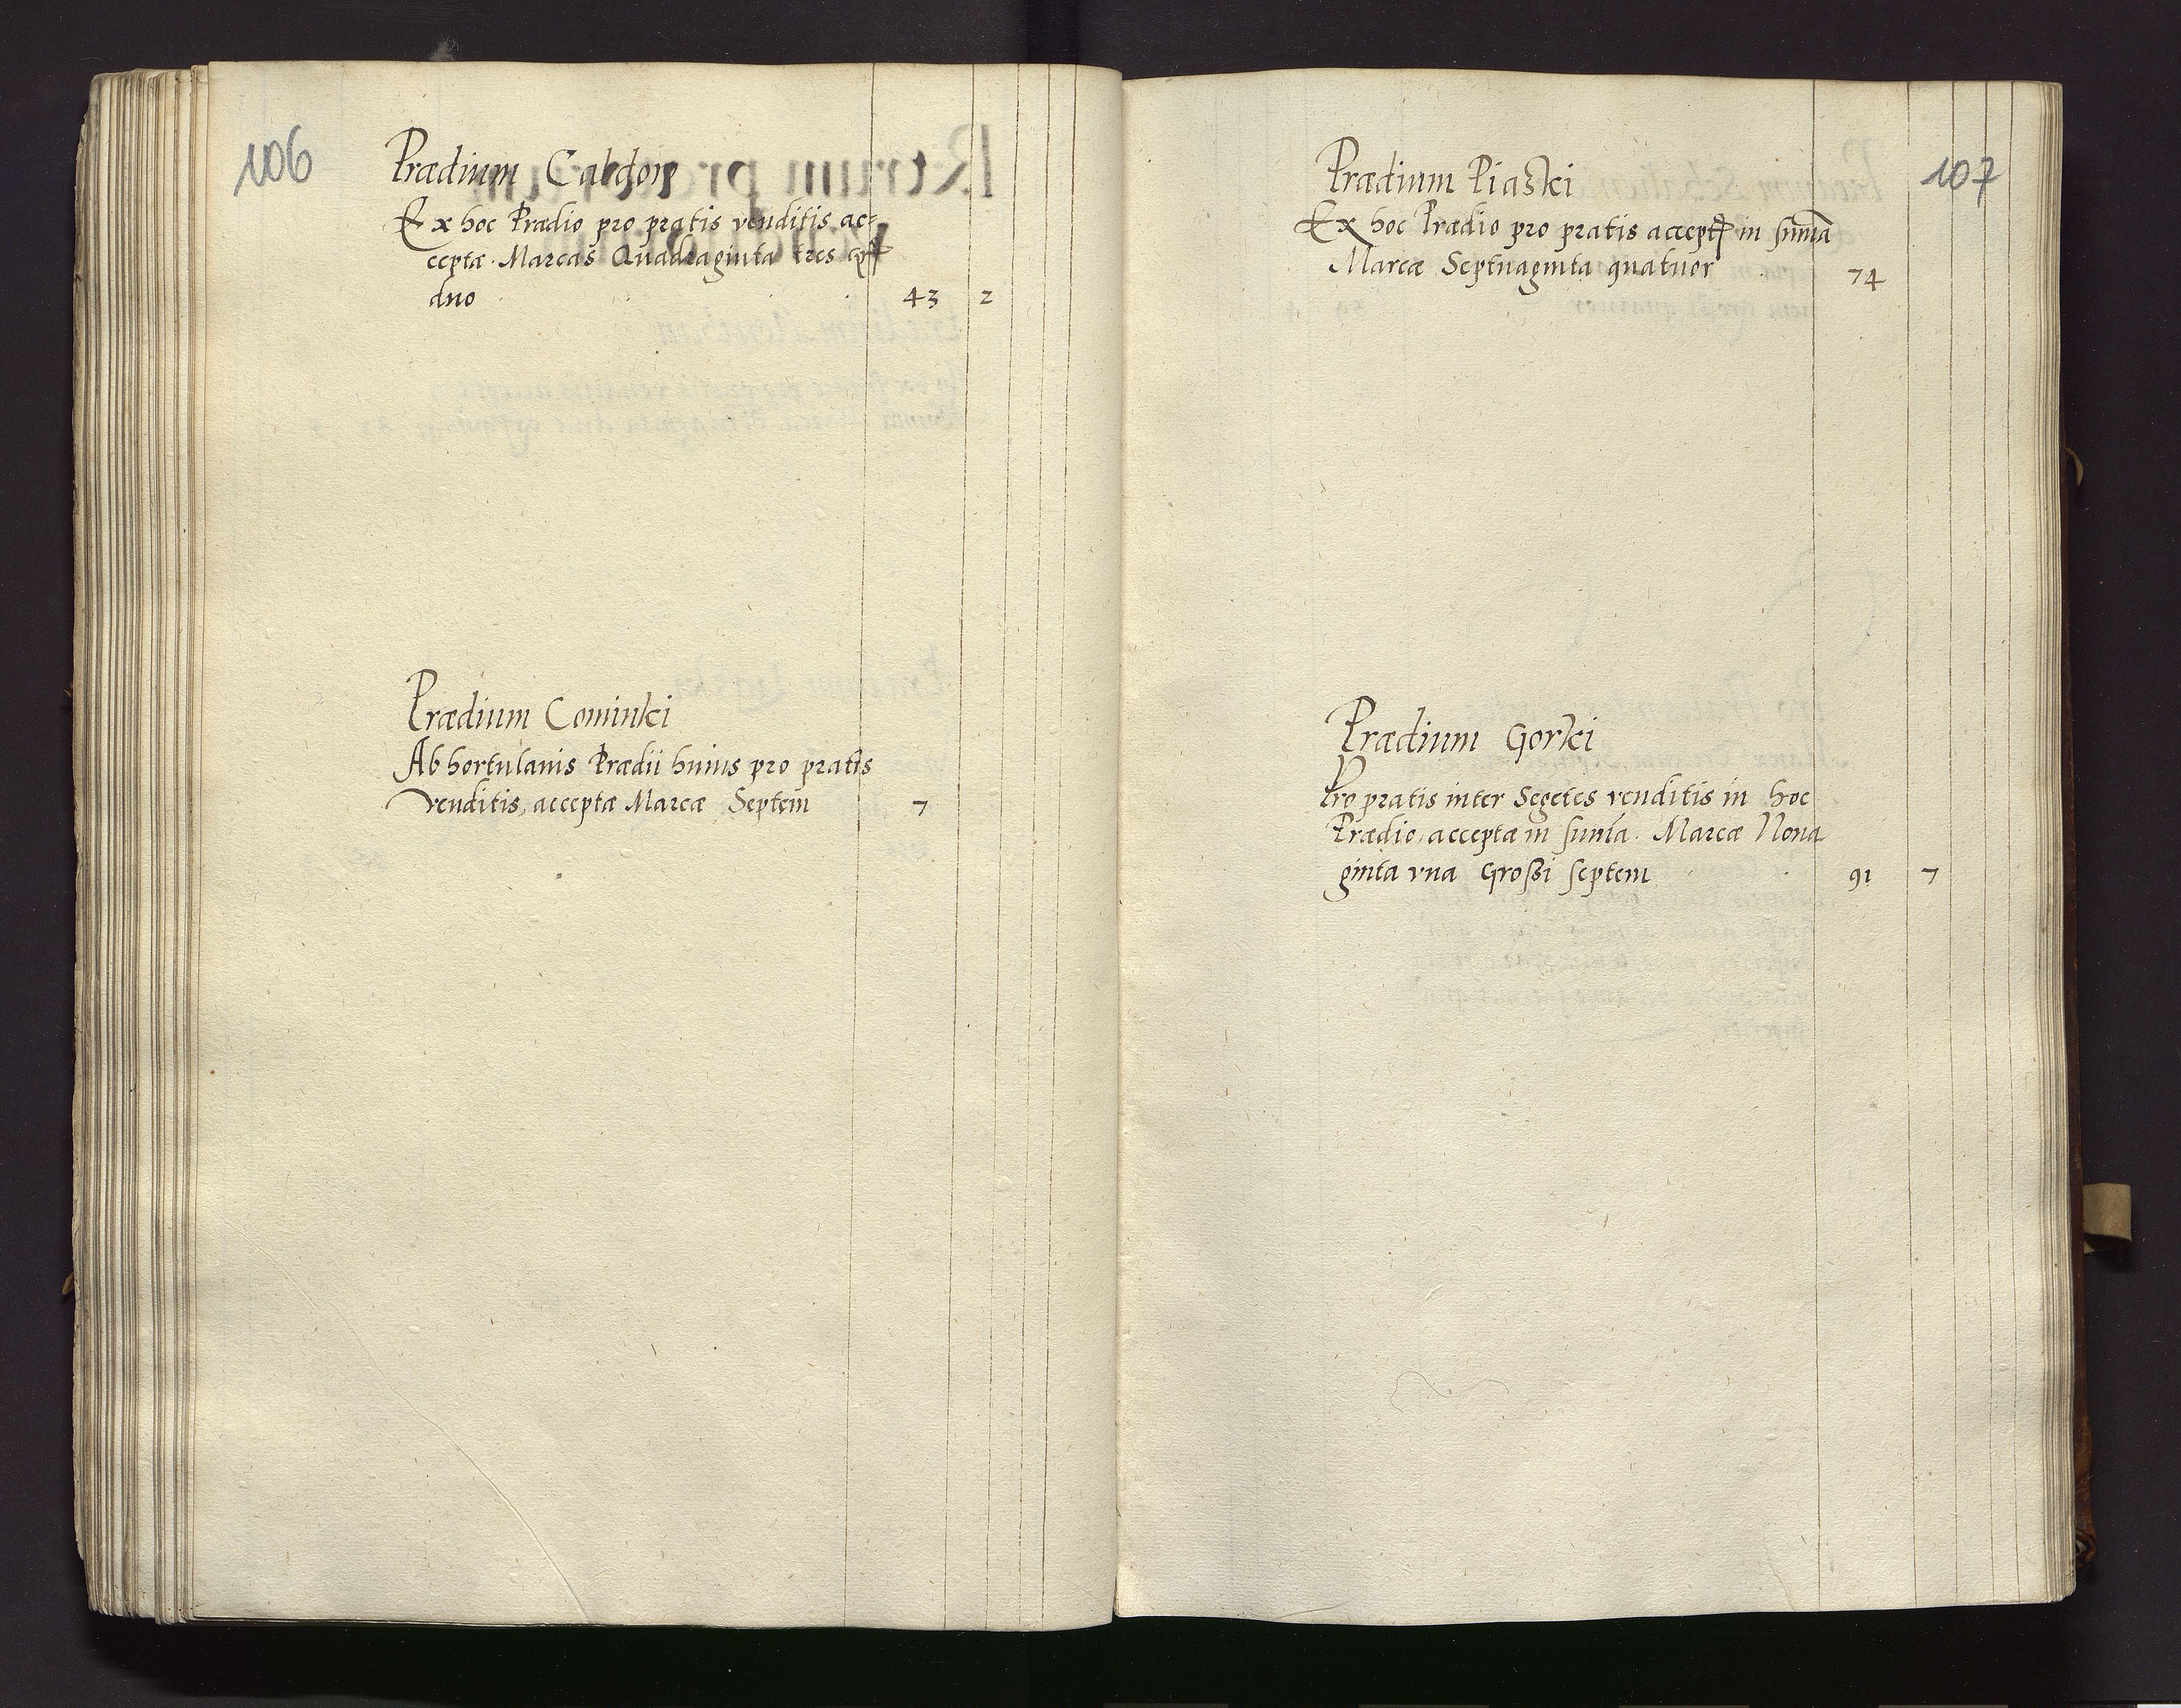 106
Prædium Caldow
Ex hoc Prædio pro pratis venditis ac=
ceptæ Marcas Quadraginta tres
duo 43 2
Prædium Cominki
Ab hortulanis Prædii huius pro pratis
venditis, acceptæ Marcæ Septem 7
107
Prædium Piaski
Ex hoc Prædio pro pratis accept in sum̄a
Marcæ Septuaginta quatuor 74
Prædium Gorki
Pro pratis inter Segetes venditis in hoc
Prædio, acceptæ in sum̄a. Marcæ Nona
ginta vna Großi septem 91 7